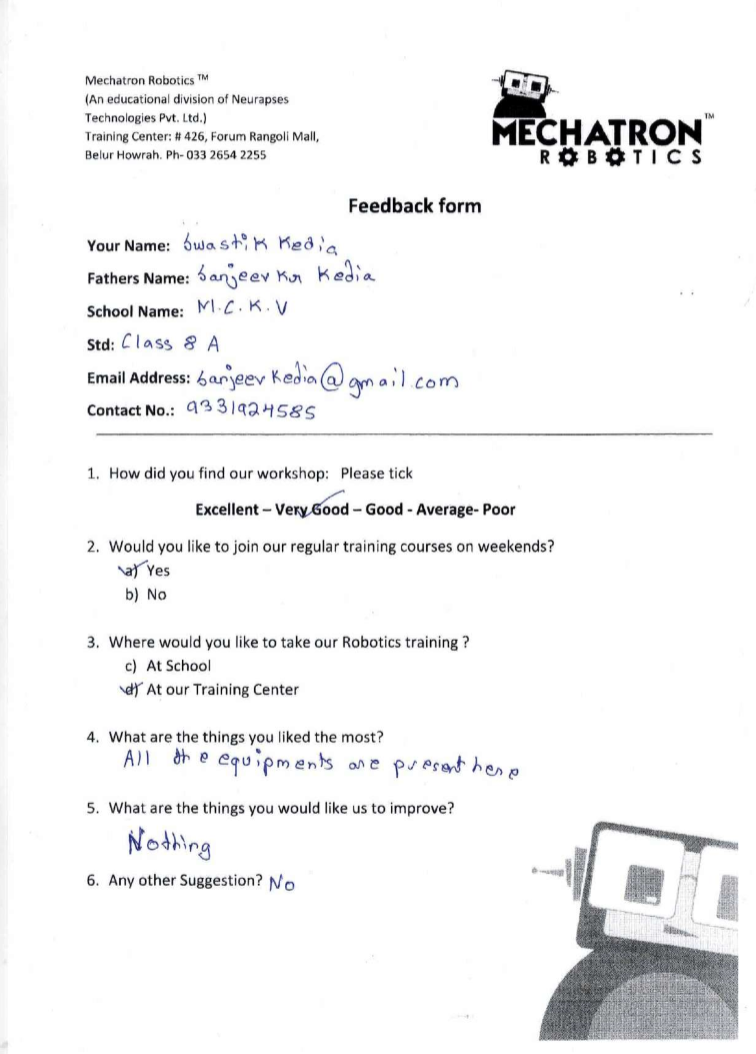 Mechatron Robotics ™
(An educational division of Neurapses
Technologies Pvt. Ltd.)
Training Center: # 426, Forum Rangoli Mall,
Belur Howrah. Ph- 033 2654 2255
MECHATRON™
ROBOTICS
Feedback form
Your Name: Swastik Kedia
Fathers Name: Sanjeev Kr Kedia
School Name: M.C.K.V
Std: Class 8 A
Email Address: sanjeevkedia@gmail.com
Contact No.: 9331924585
1. How did you find our workshop: Please tick
Excellent – Very Good – Good - Average- Poor
2. Would you like to join our regular training courses on weekends?
a) Yes
b) No
3. Where would you like to take our Robotics training ?
c) At School
d) At our Training Center
4. What are the things you liked the most?
All the equipments are present here
5. What are the things you would like us to improve?
Nothing
6. Any other Suggestion? No